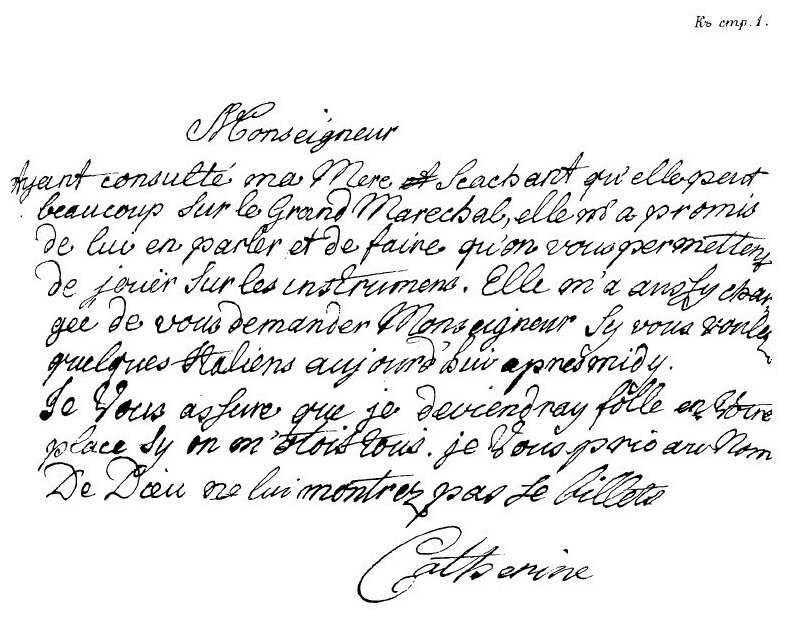 Къ стр. 1.
Monseigneur
Ayant consulté ma Mere et Scachant qu'elle peut
beaucoup sur le Grand Marechal, elle m'a promis
de lui en parler et de faire qu'on vous permettent
de jouër sur les instrumens. Elle m'a aussy char
gée de vous demander Monseigneur sy vous voulez
quelques Italiens aujourd'hui apresmidy.
Je Vous assure que je deviendray folle en Votre
place sy on m'ôtois tous. je Vous prie au Nom
De Dieu ne lui montrez pas se billets
Catherine